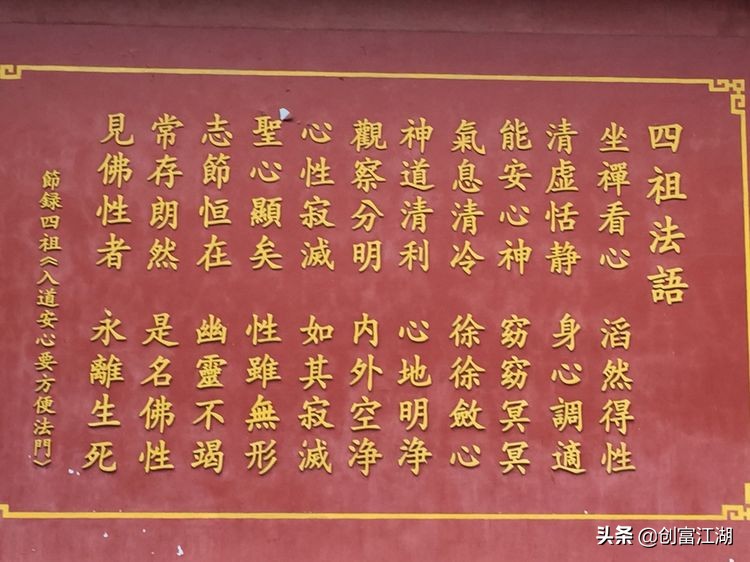 四祖法語
坐禪看心 滔然得性
清虛恬静 身心調適
能安心神 窈窈冥冥
氣息清冷 徐徐斂心
神道清利 心地明浄
觀察分明 内外空浄
心性寂滅 如其寂滅
聖心顯矣 性雖無形
志節恒在 幽靈不竭
常存朗然 是名佛性
見佛性者 永離生死
節録四祖《入道安心要方便法門》
头条 @创富江湖